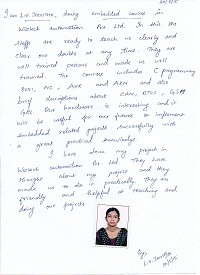 I am L.K. Jansirita, doing embedded course in
Wiztech automation Pvt. Ltd. In this the
staffs are ready to teach us clearly and
clear our doubts at any time. They are
well trained persons and made us well
trained. The courses includes C programming
8051, PIC, AVR and ARM and also
brief descriptions about CAN, RTOS, GSM
GPS. Our hardware is interesting and it
will be useful for our future to implement
embedded related projects successfully with
a great practical knowledge.
I have done my project in
Wiztech automation Pvt. Ltd. They have
thought about my project and they
made us to do it practically. They are
friendly and helpful in teaching and
doing our projects.
By,